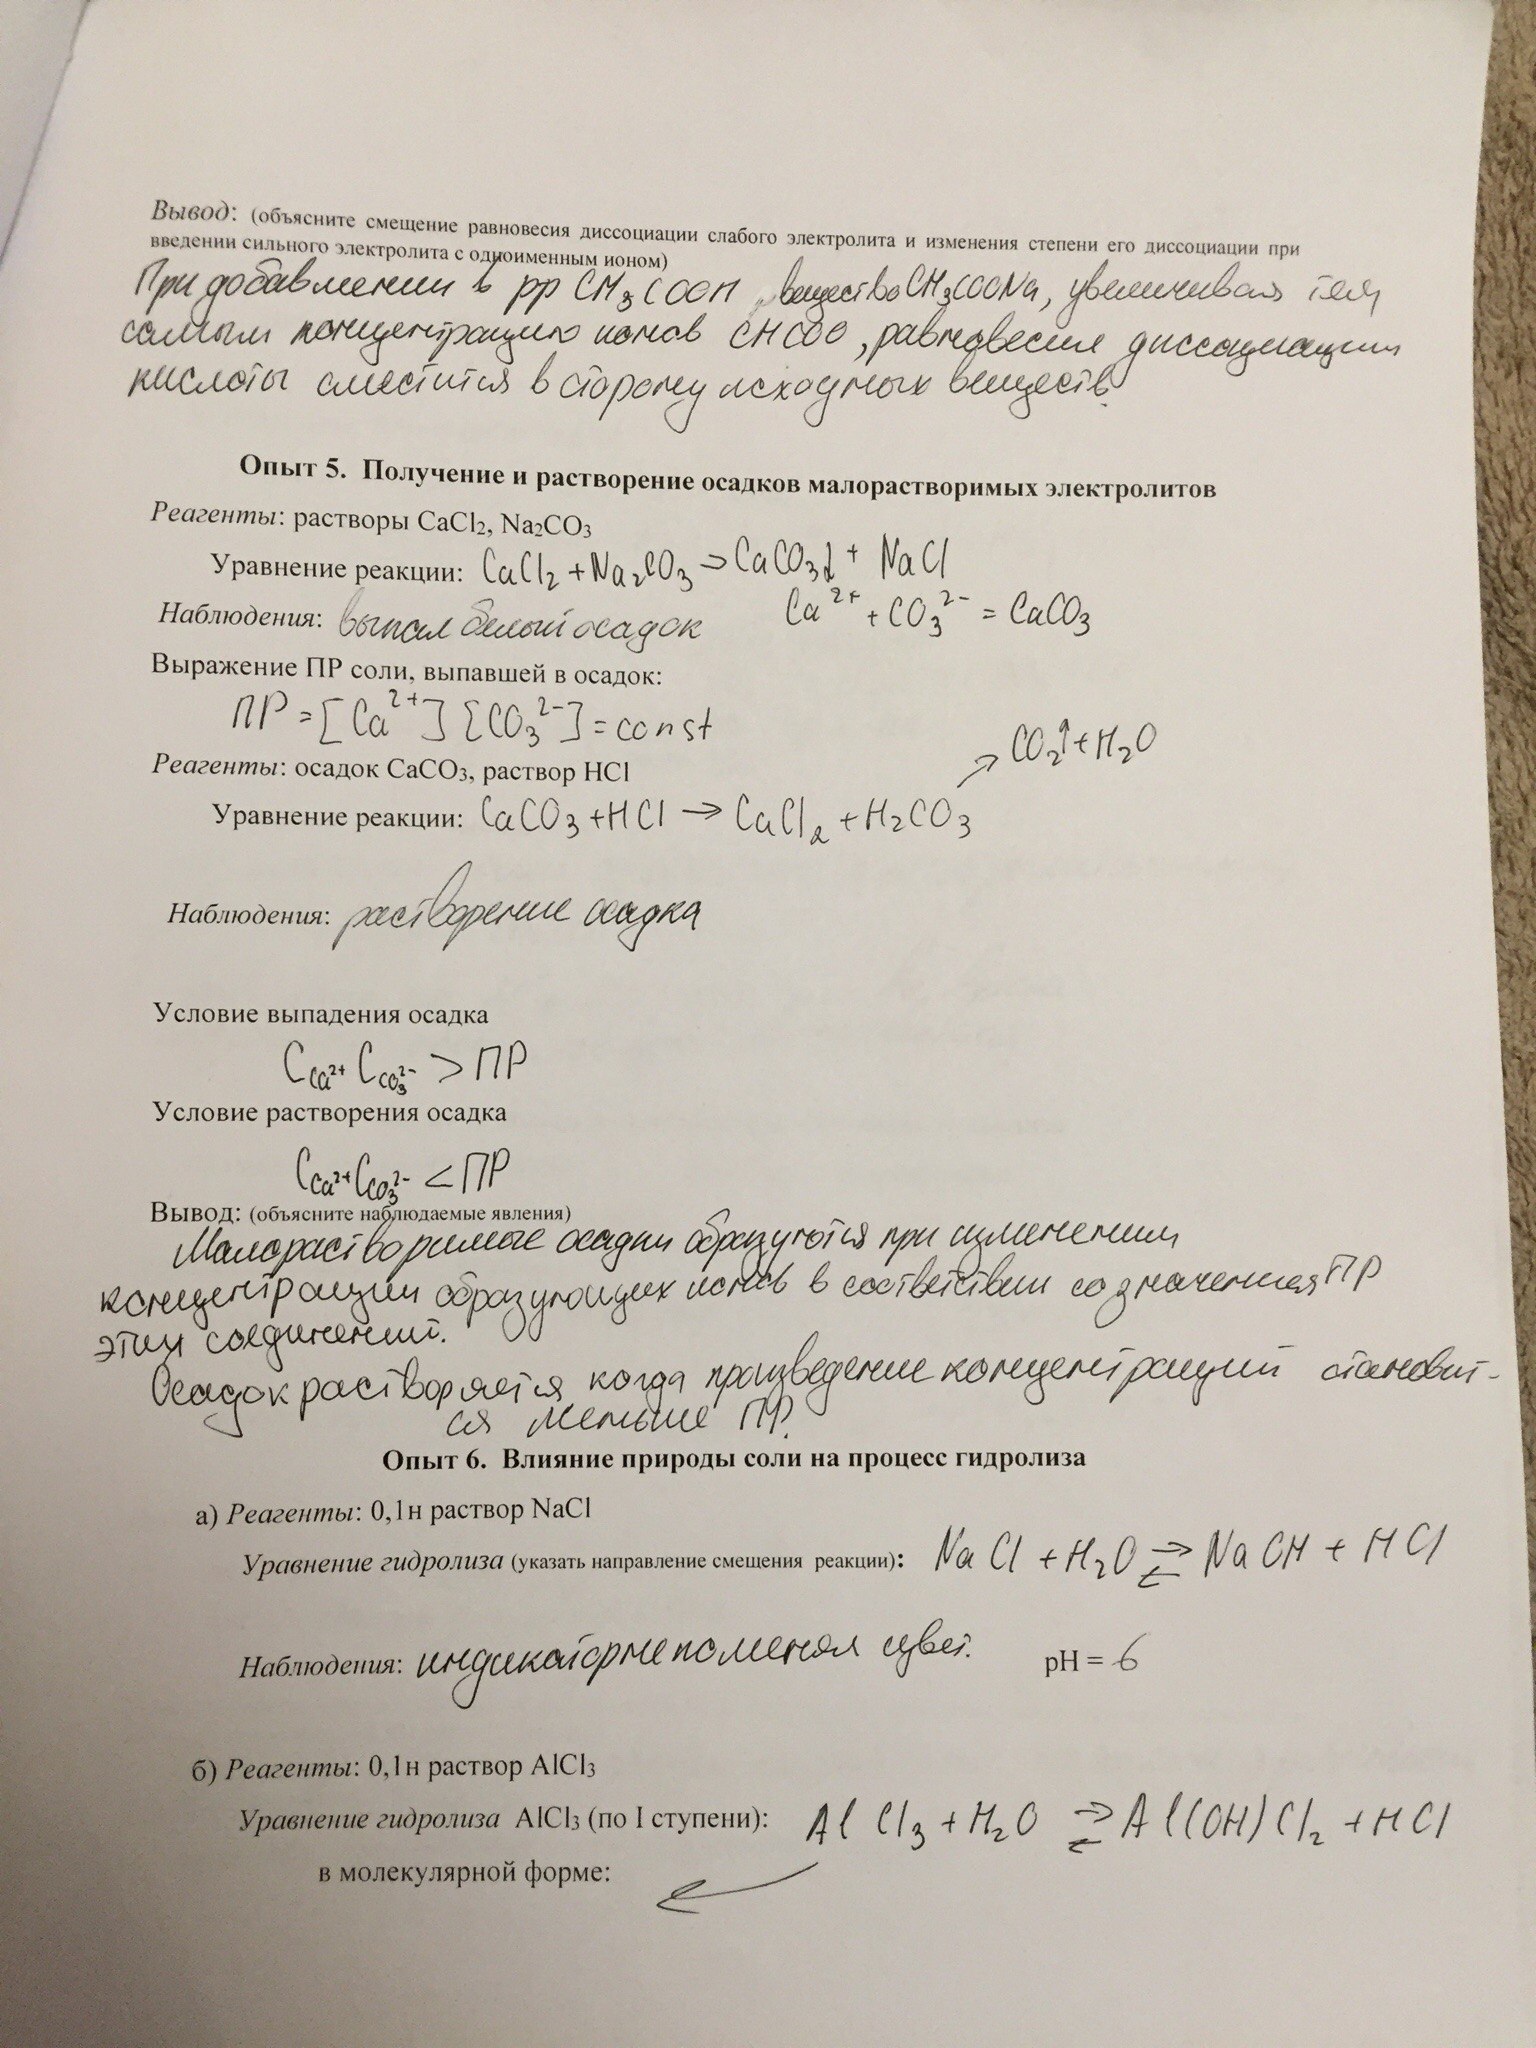 Вывод: (объясните смещение равновесия диссоциации слабого электролита и изменения степени его диссоциации при
введении сильного электролита с одноименным ионом)
При добавлении в рр CH₃COOH вещество CH₃COONa, увеличивая тем
самым концентрацию ионов CHCOO, равновесие диссоциации
кислоты сместится в сторону исходных веществ.
Опыт 5. Получение и растворение осадков малорастворимых электролитов
Реагенты: растворы CaCl₂, Na₂CO₃
Уравнение реакции: CaCl₂ + Na₂CO₃ → CaCO₃↓ + NaCl
Ca²⁺ + CO₃²⁻ = CaCO₃
Наблюдения: выпал белый осадок
Выражение ПР соли, выпавшей в осадок:
ПР = [Ca²⁺] [CO₃²⁻] = const
Реагенты: осадок CaCO₃, раствор HCl
↗ CO₂↑ + H₂O
Уравнение реакции: CaCO₃ + HCl → CaCl₂ + H₂CO₃
Наблюдения: растворение осадка
Условие выпадения осадка
C Ca²⁺ C CO₃²⁻ > ПР
Условие растворения осадка
C Ca²⁺ C CO₃²⁻ < ПР
Вывод: (объясните наблюдаемые явления)
Малорастворимые осадки образуются при изменении
концентрации образующих ионов в соответствии со значения ПР
этих соединений.
Осадок растворяется когда произведение концентраций становит-
ся меньше ПР.
Опыт 6. Влияние природы соли на процесс гидролиза
а) Реагенты: 0,1н раствор NaCl
Уравнение гидролиза (указать направление смещения реакции): NaCl + H₂O ⇄ NaOH + HCl
Наблюдения: индикатор не поменял цвет. pH = 6
б) Реагенты: 0,1н раствор AlCl₃
Уравнение гидролиза AlCl₃ (по I ступени): AlCl₃ + H₂O ⇄ Al(OH)Cl₂ + HCl
в молекулярной форме: ←